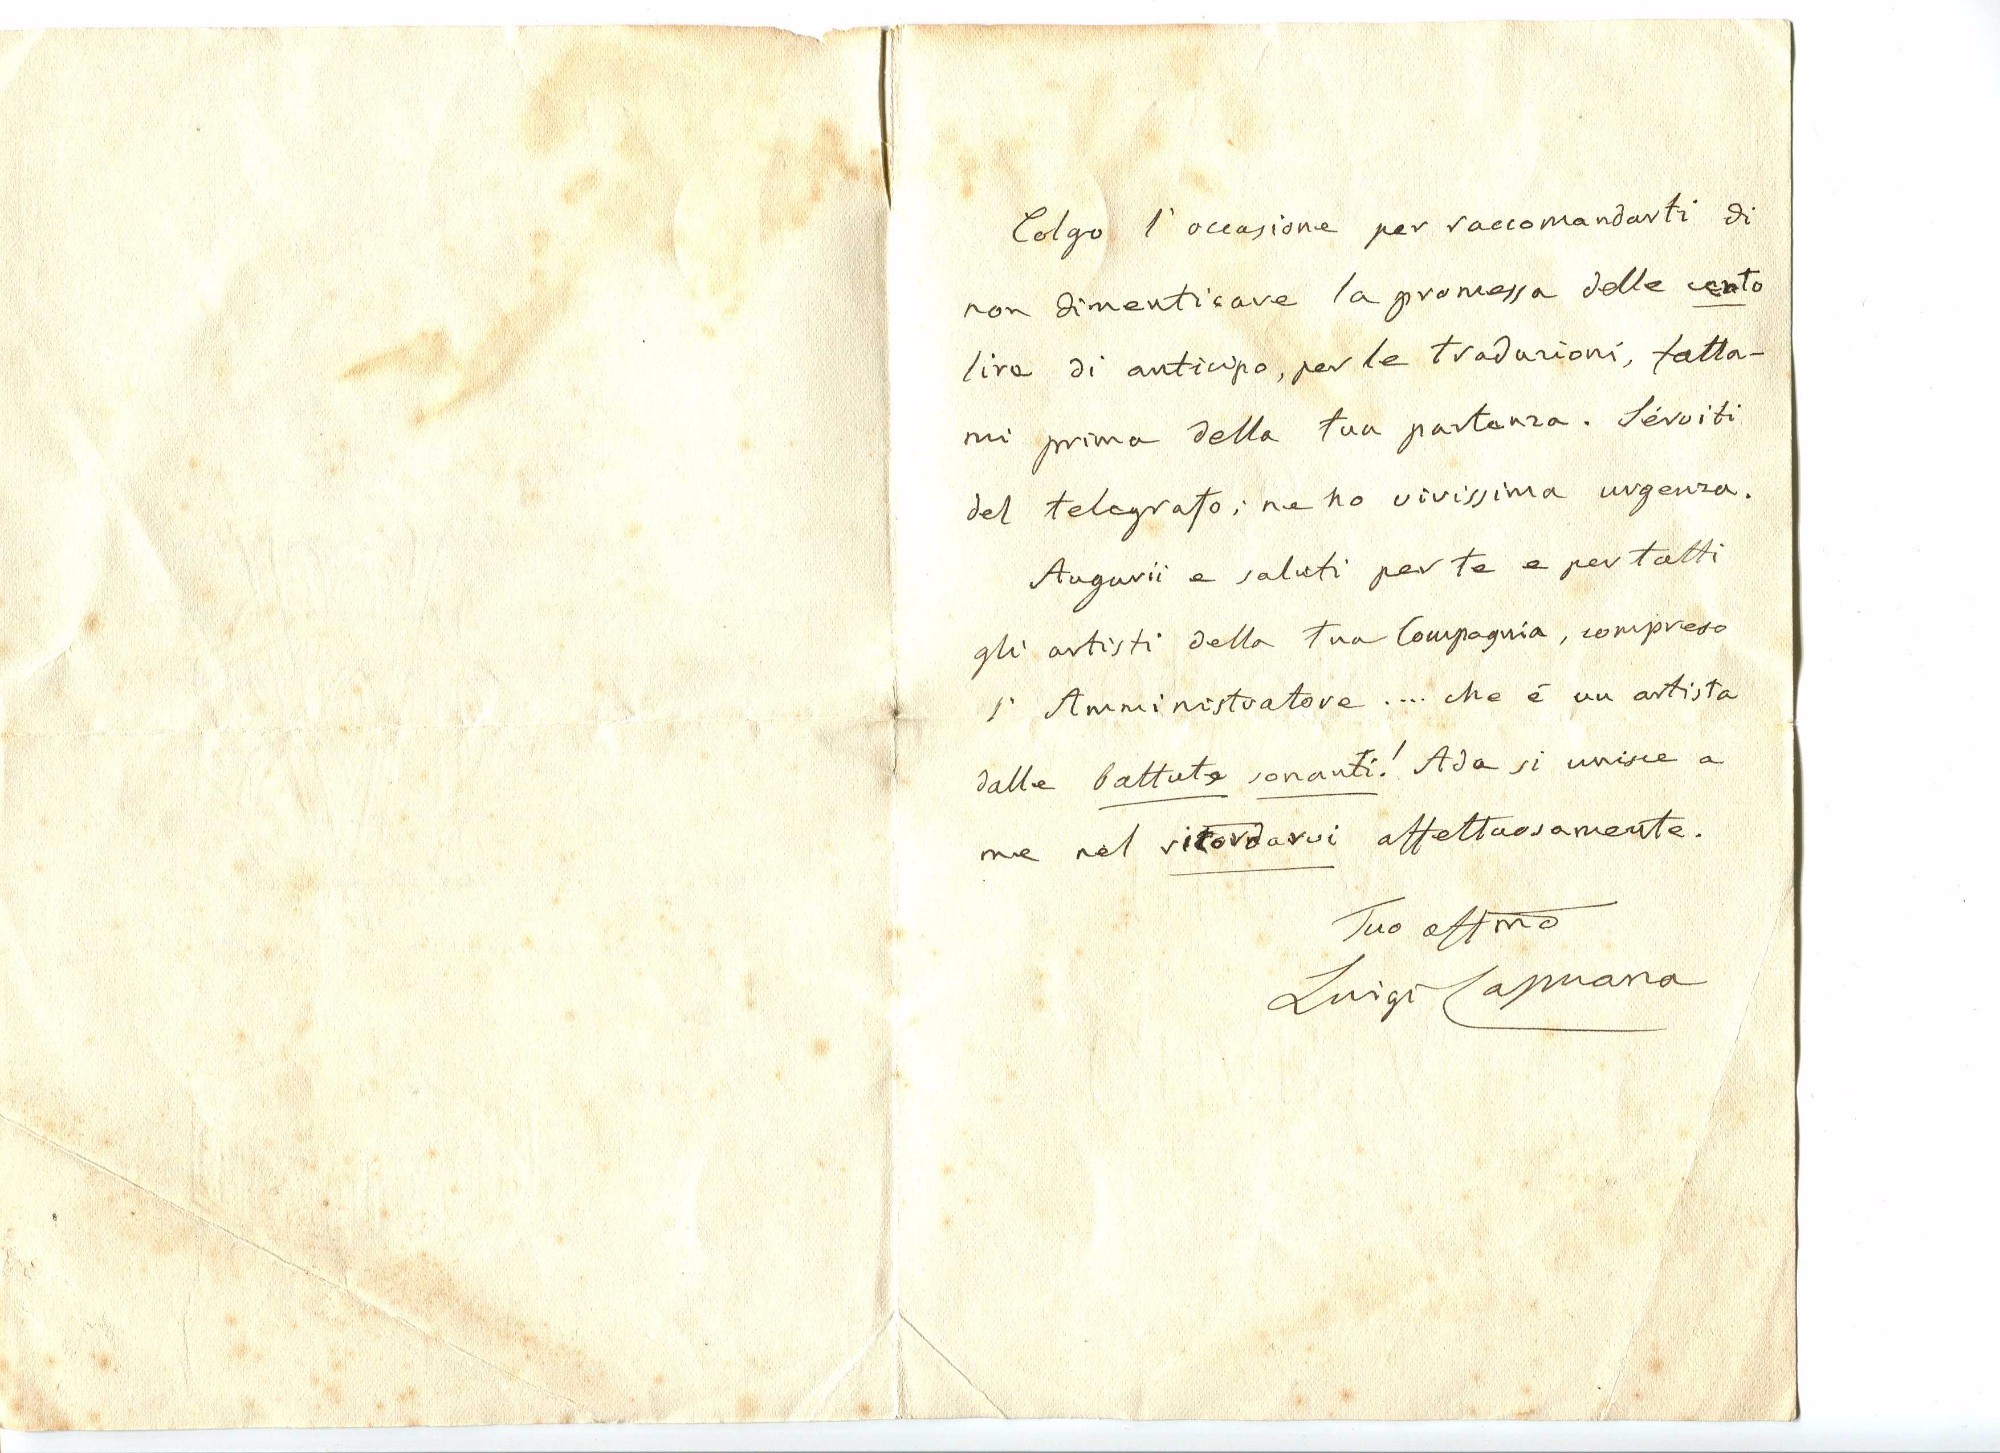 Colgo l'occasione per raccomandarti di
non dimenticare la promessa delle cento
lire di anticipo, per le traduzioni, fatta-
mi prima della tua partenza. Sérviti
del telegrafo; ne ho vivissima urgenza.
Augurii e saluti per te e per tutti
gli artisti della tua Compagnia, compreso
l'Amministratore .... che é un artista
dalle battute sonanti! Ada si unisce a
me nel ricordarvi affettuosamente.
Tuo affmo
Luigi Capuana